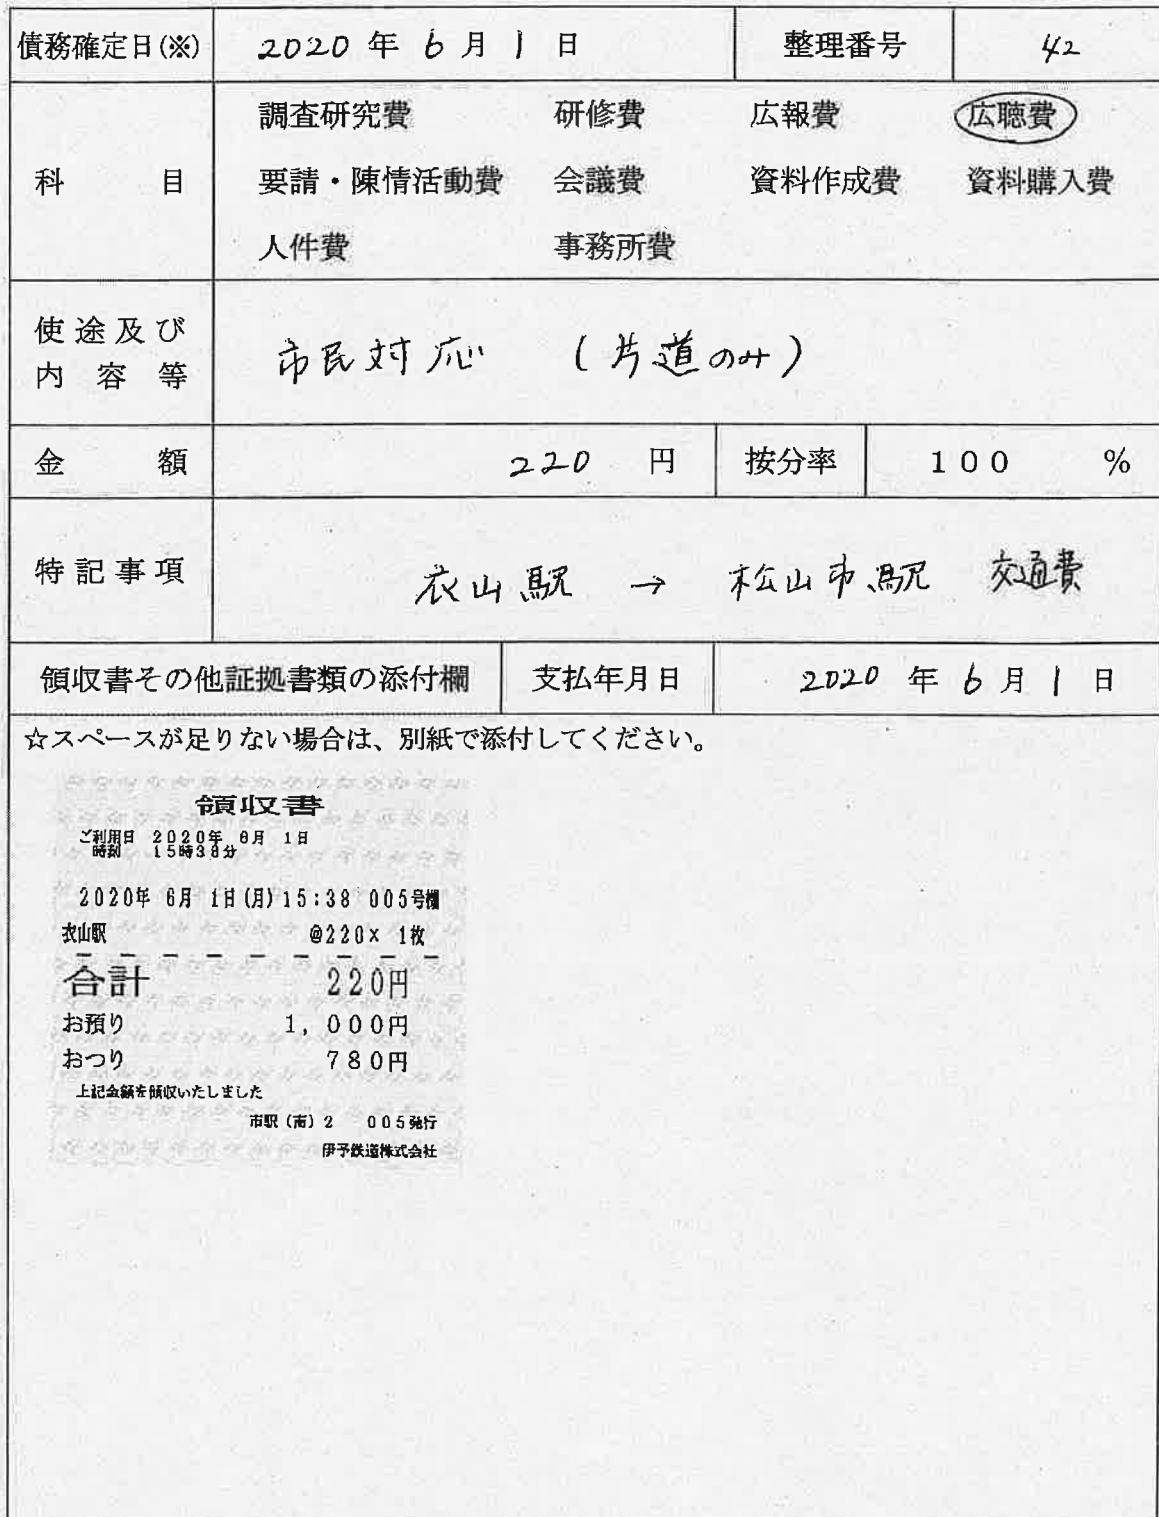 債務確定日(※) 2020 年 6 月 1 日 整理番号 42
科目 調査研究費 研修費 広報費 広聴費
要請・陳情活動費 会議費 資料作成費 資料購入費
人件費 事務所費
使途及び内容等 市民対応 (片道のみ)
金額 220 円 按分率 100 %
特記事項 衣山駅 → 松山市駅 交通費
領収書その他証拠書類の添付欄 支払年月日 2020 年 6 月 1 日
☆スペースが足りない場合は、別紙で添付してください。
領収書
ご利用日 2020年 6月 1日
時刻 15時38分
2020年 6月 1日(月)15:38 005号機
衣山駅 @220× 1枚
合計 220円
お預り 1,000円
おつり 780円
上記金額を領収いたしました
市駅(南)2 005発行
伊予鉄道株式会社